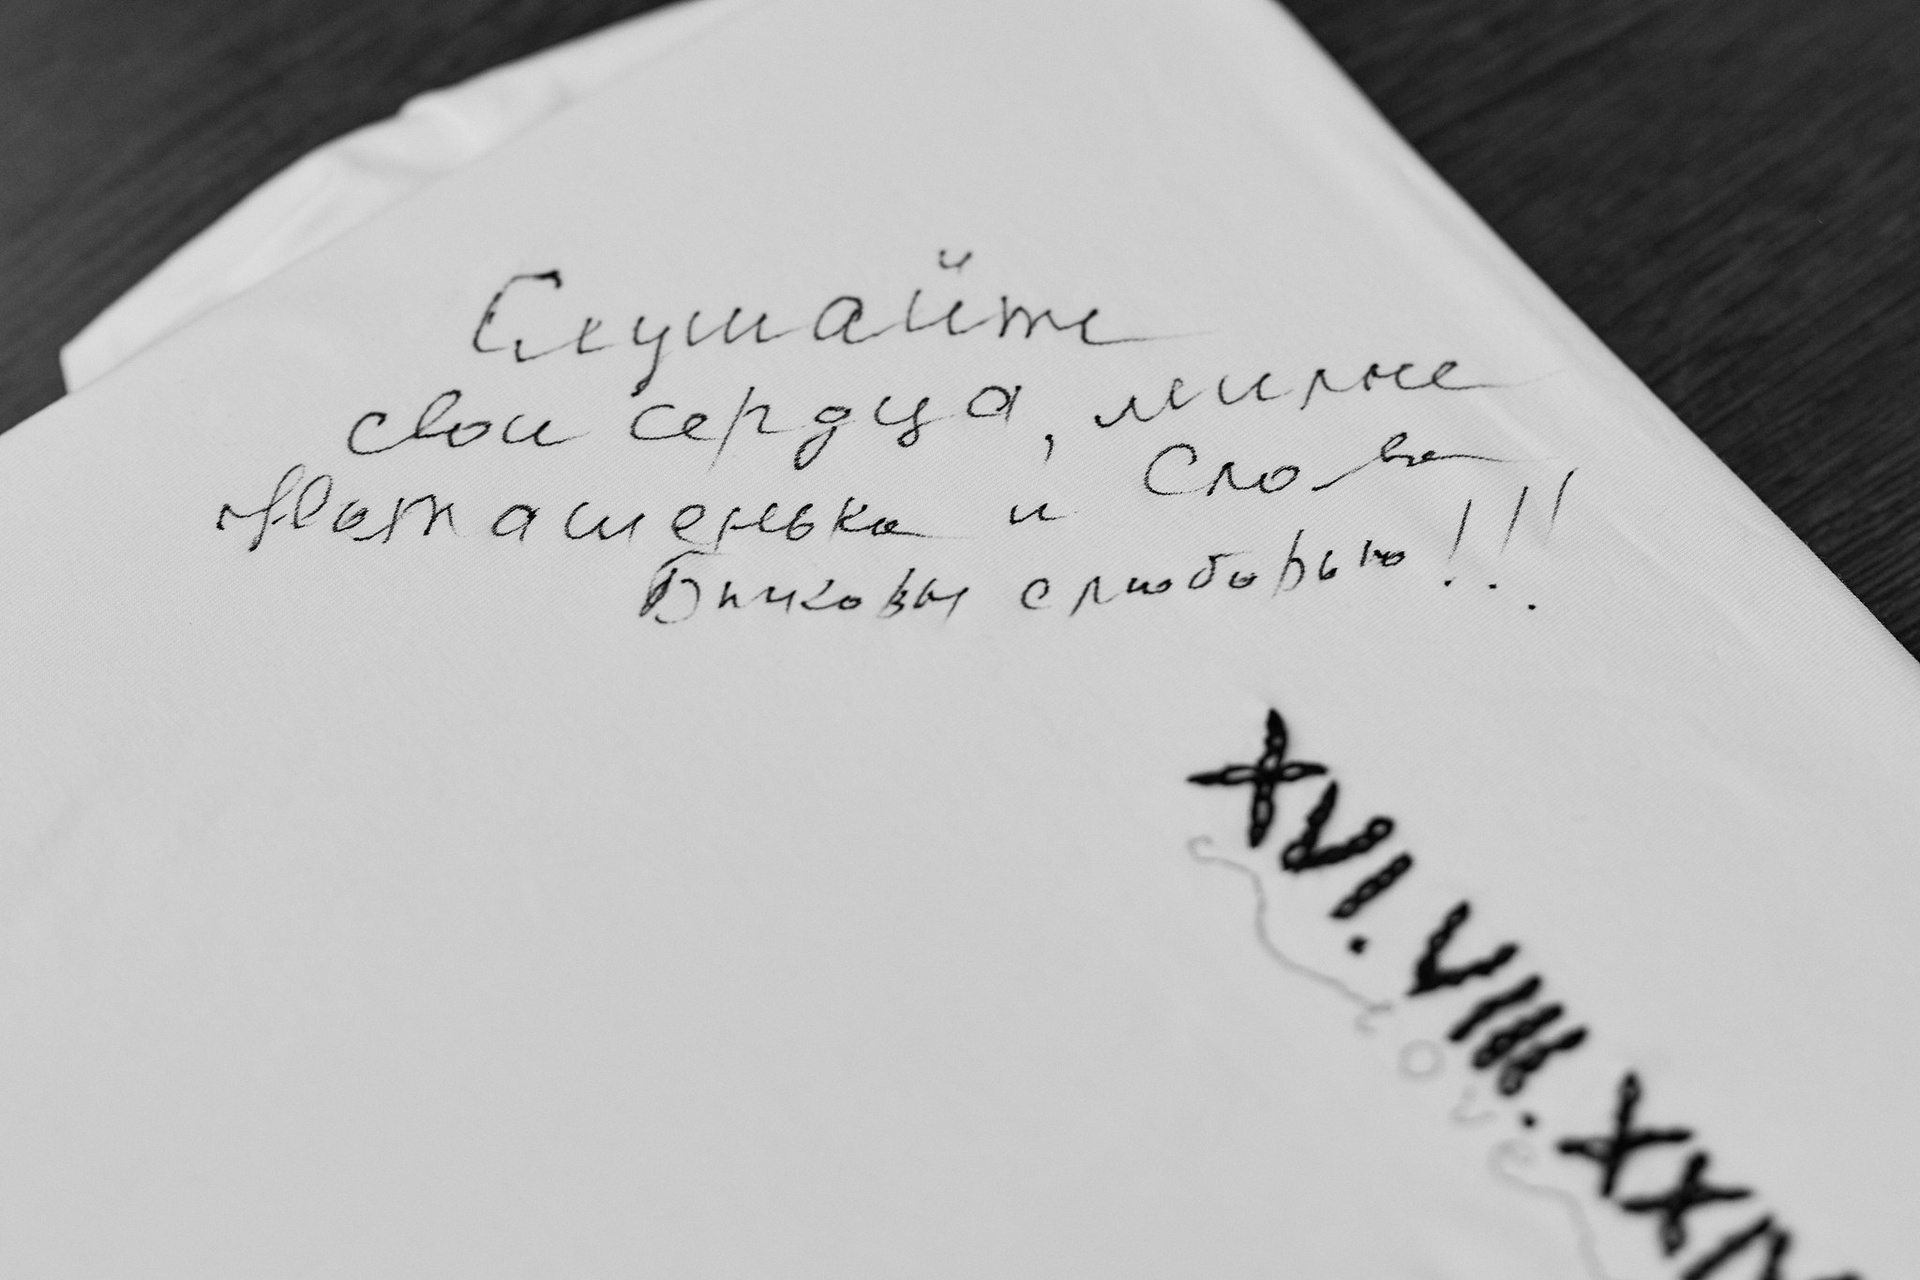 Слушайте
свои сердца, милые
Наташенька и Слава
Быковы с любовью!!!
XVI.VIII.XXIV